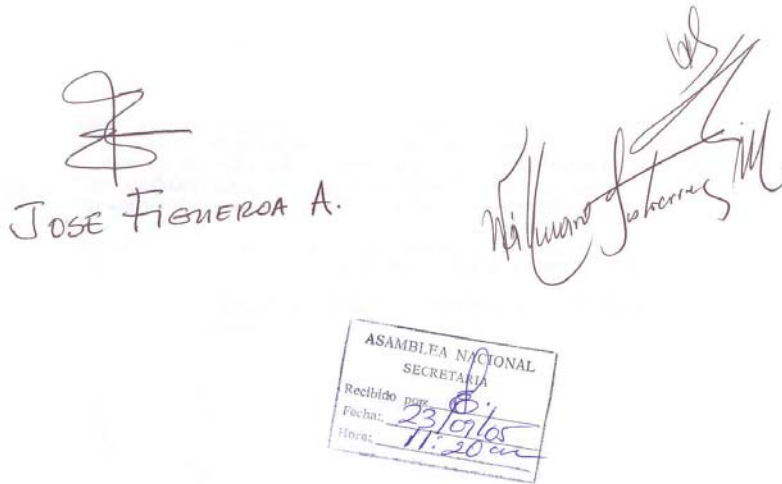 JOSE FIGUEROA A.
Wilfredo Gutierrez M
ASAMBLEA NACIONAL
SECRETARIA
Recibido por:
Fecha: 23/09/05
Hora: 11:20 am